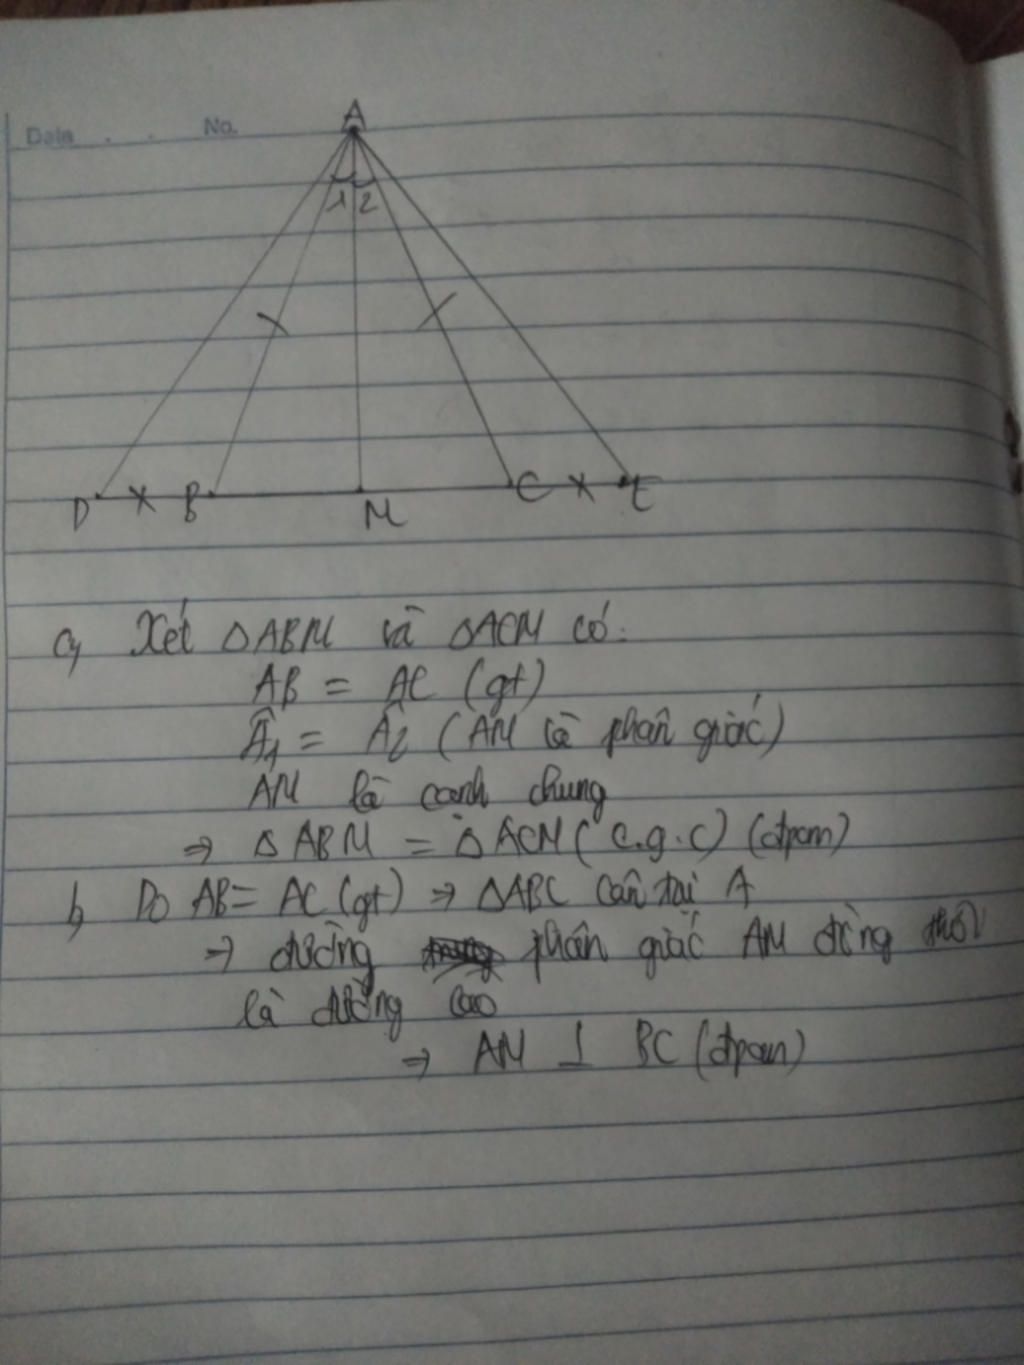 Date . . No.
A
1 2
D B M C E
a, Xét △ABM và △ACM có:
AB = AC (gt)
Â1 = Â2 (AM là phân giác)
AM là cạnh chung
⇒ △ABM = △ACM (c.g.c) (đpcm)
b, Do AB = AC (gt) ⇒ △ABC cân tại A
⇒ đường phân giác AM đồng thời
là đường cao
⇒ AM ⊥ BC (đpcm)